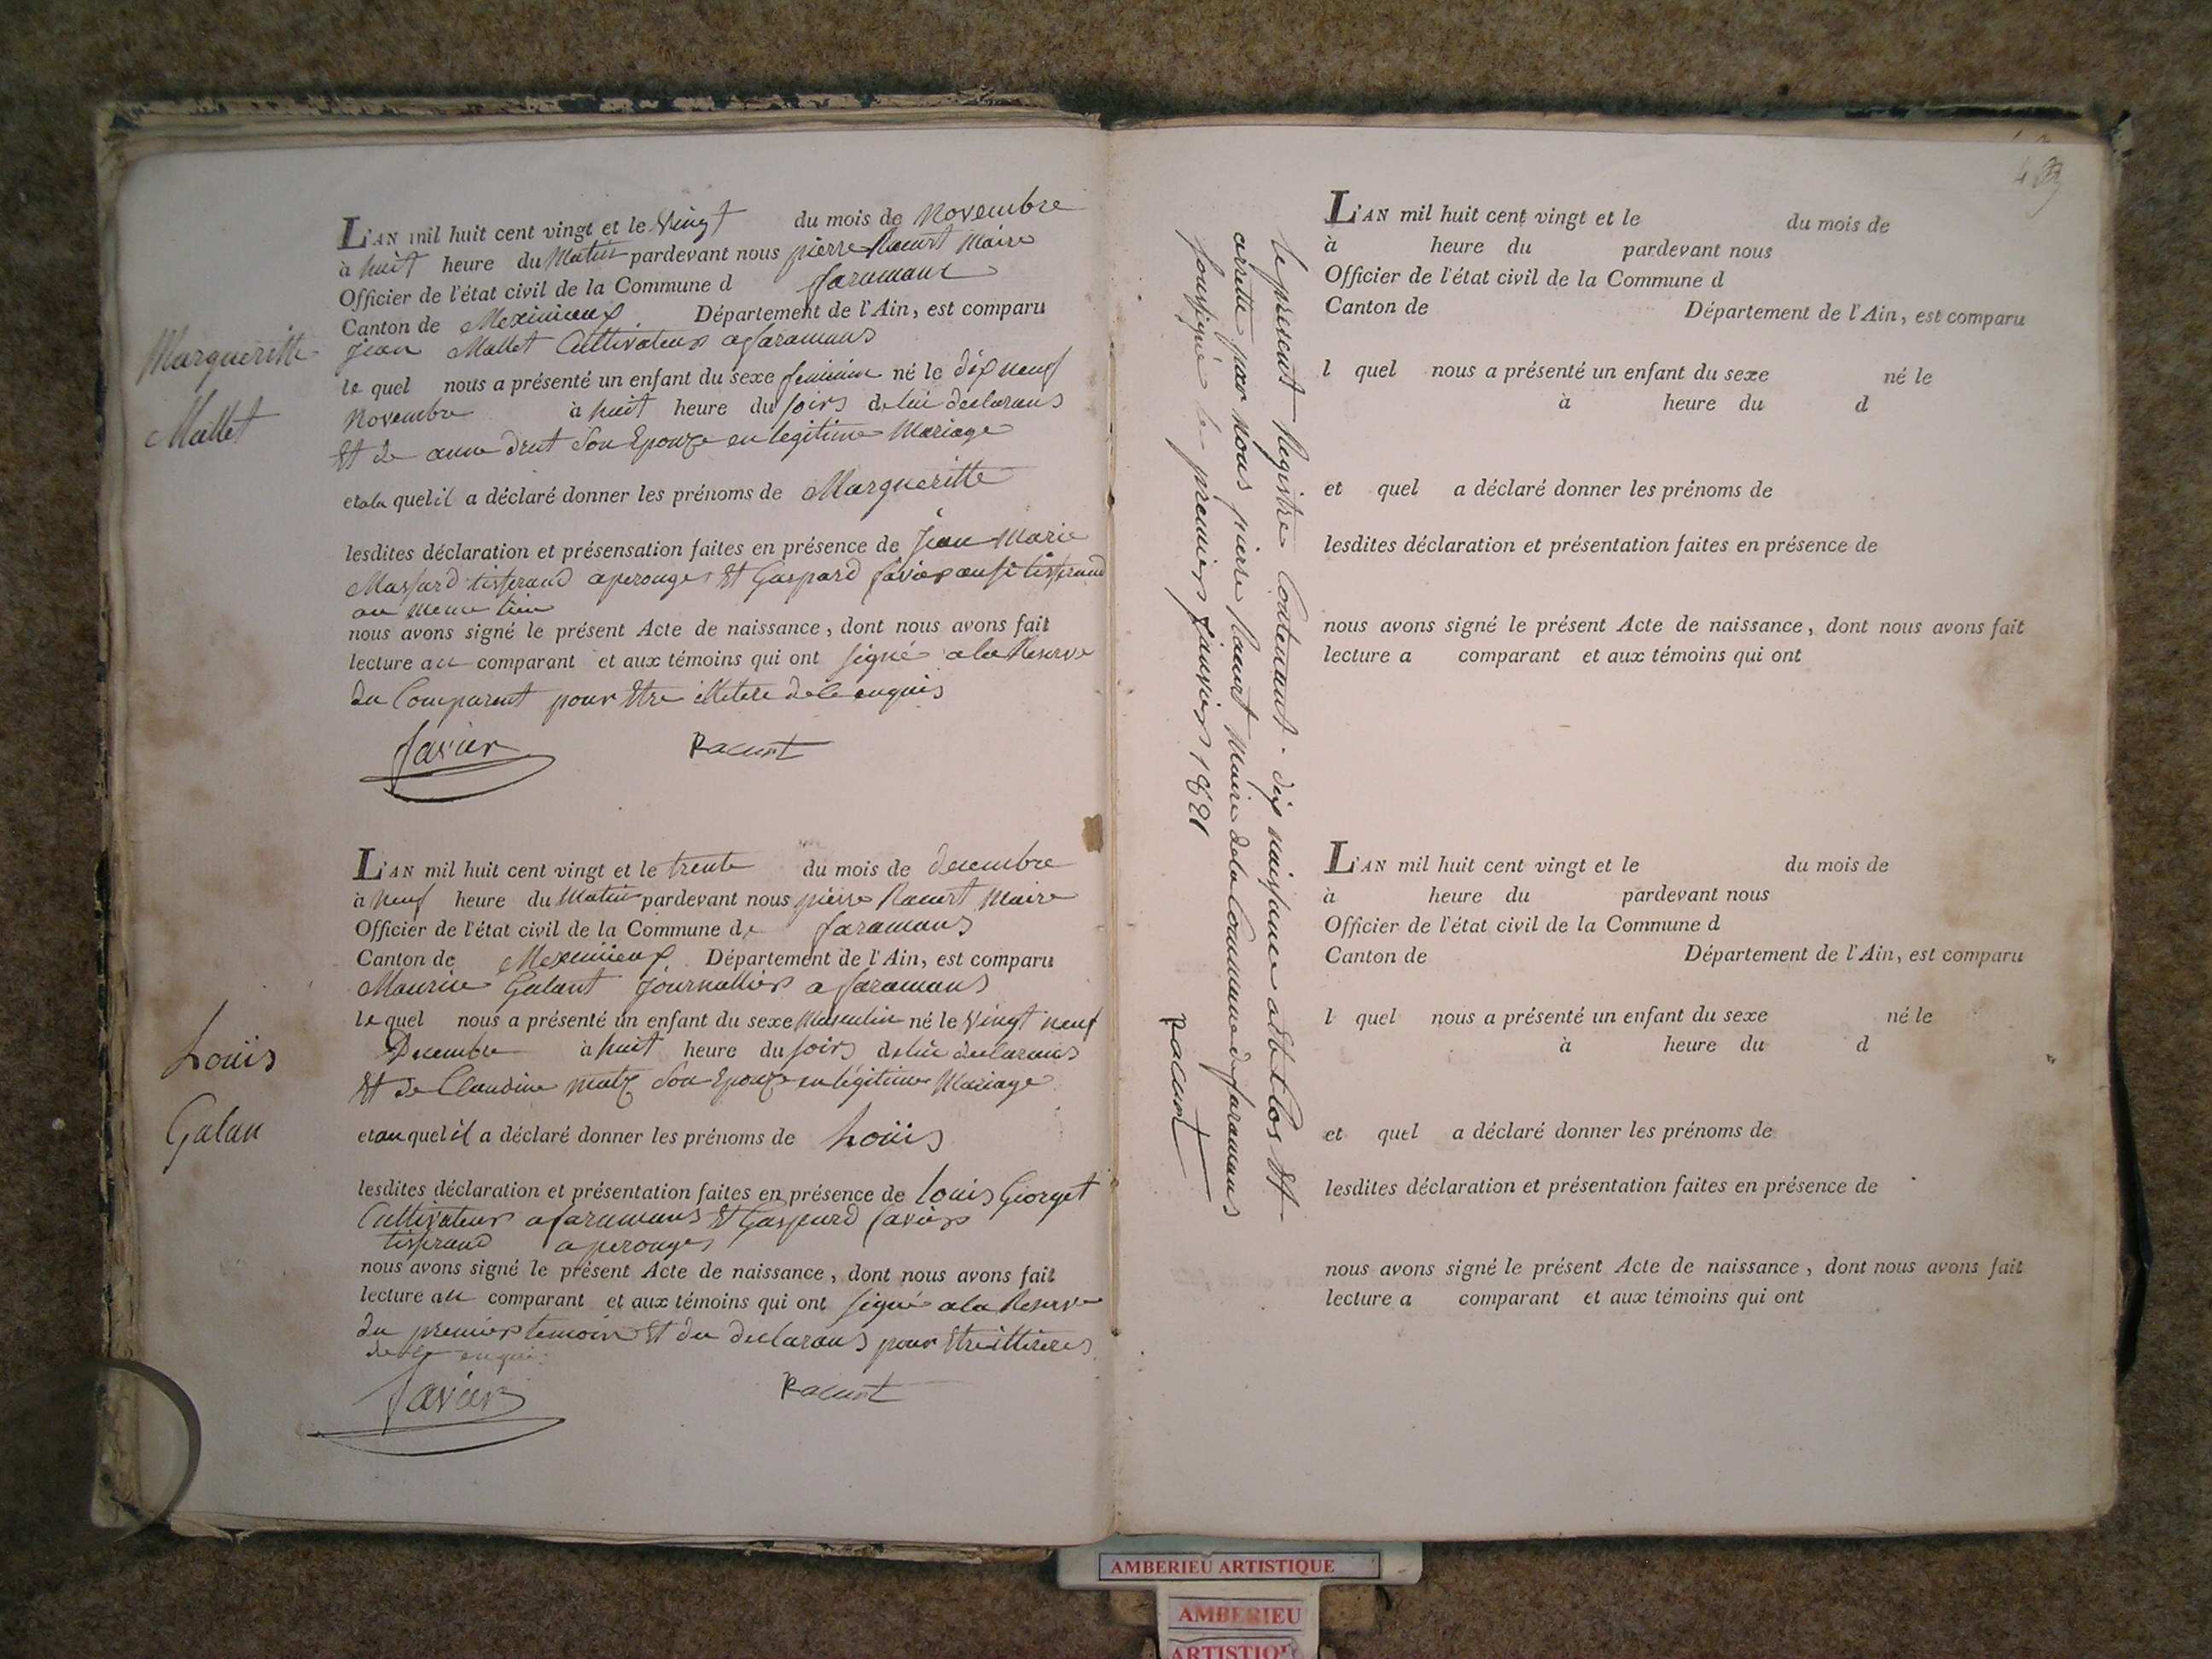 L'AN mil huit cent vingt et le Vingt du mois de Novembre
à huit heure du Matin pardevant nous pierre Racurt Maire
Officier de l'état civil de la Commune d faramans
Canton de Meximieux Département de l'Ain, est comparu
Jean Mallet Cultivateur a faramans
le quel nous a présenté un enfant du sexe feminin né le dix neuf
Novembre à huit heure du soirs de lui declarans
Et de anne drut Son Epouze en legitime Mariage
et a la quel il a déclaré donner les prénoms de Margueritte
lesdites déclaration et présensation faites en présence de Jean Marie
Massard tisserand a perouges Et Gaspard favier ausi tisserand
au meme lieu
nous avons signé le présent Acte de naissance, dont nous avons fait
lecture au comparant et aux témoins qui ont signé a la Reserve
du Comparent pour Etre illetere de le enquis
favier Racurt
Margueritte
Mallet
L'AN mil huit cent vingt et le trente du mois de decembre
à neuf heure du Matin pardevant nous pierre Racurt Maire
Officier de l'état civil de la Commune de faramans
Canton de Meximieux Département de l'Ain, est comparu
Maurice Galant journallier a faramans
le quel nous a présenté un enfant du sexe Masculin né le Vingt neuf
Decembre à huit heure du soirs de lui declarans
Et de Claudine Son Epouze en légitime Mariage
et au quel il a déclaré donner les prénoms de Loüis
lesdites déclaration et présentation faites en présence de Louis Georget
Cultivateur a faramans Et Gaspard favier
tisserand a perouges
nous avons signé le présent Acte de naissance, dont nous avons fait
lecture au comparant et aux témoins qui ont signé a la Reserve
du premier temoin Et du declarans pour Etre illiteres
de le enquis
favier Racurt
Loüis
Galan
Le present Registre Contenant dix naissance a Eté Clos Et
arrette par nous pierre Racurt Maire de la Commune de faramans
soussigné le premier janvier 1821
Racurt
L'AN mil huit cent vingt et le du mois de
à heure du pardevant nous
Officier de l'état civil de la Commune d
Canton de Département de l'Ain, est comparu
l quel nous a présenté un enfant du sexe né le
à heure du d
et quel a déclaré donner les prénoms de
lesdites déclaration et présentation faites en présence de
nous avons signé le présent Acte de naissance, dont nous avons fait
lecture a comparant et aux témoins qui ont
L'AN mil huit cent vingt et le du mois de
à heure du pardevant nous
Officier de l'état civil de la Commune d
Canton de Département de l'Ain, est comparu
l quel nous a présenté un enfant du sexe né le
à heure du d
et quel a déclaré donner les prénoms de
lesdites déclaration et présentation faites en présence de
nous avons signé le présent Acte de naissance, dont nous avons fait
lecture a comparant et aux témoins qui ont
AMBERIEU ARTISTIQUE
AMBERIEU